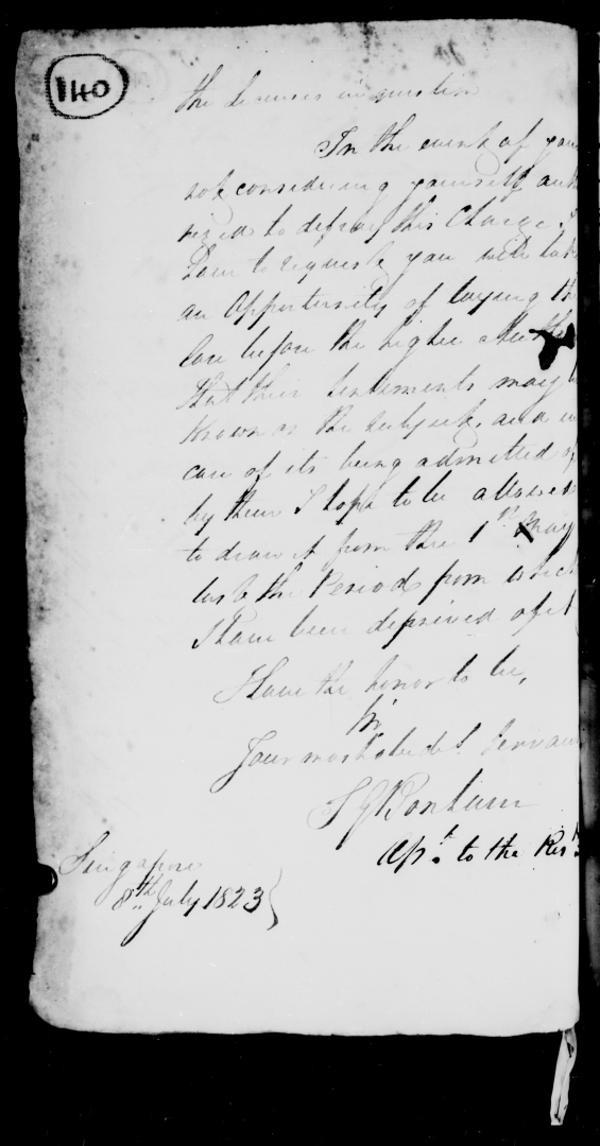 140
the licenses in question
In the event of you
not considering yourself autho
rized to defray this Charge, I
have to request you will take
an Opportunity of laying the
Case before the higher Autho
that their Sentiments may b
known on the subject, and in
case of its being admitted of
by them I hope to be allowed
to draw it from the 1st May
last the Period from which
I have been deprived of it
I have the honor to be,
Sir
Your most obedt. Servan
S G Bonham
Asst. to the Resi
Singapore
8th July 1823